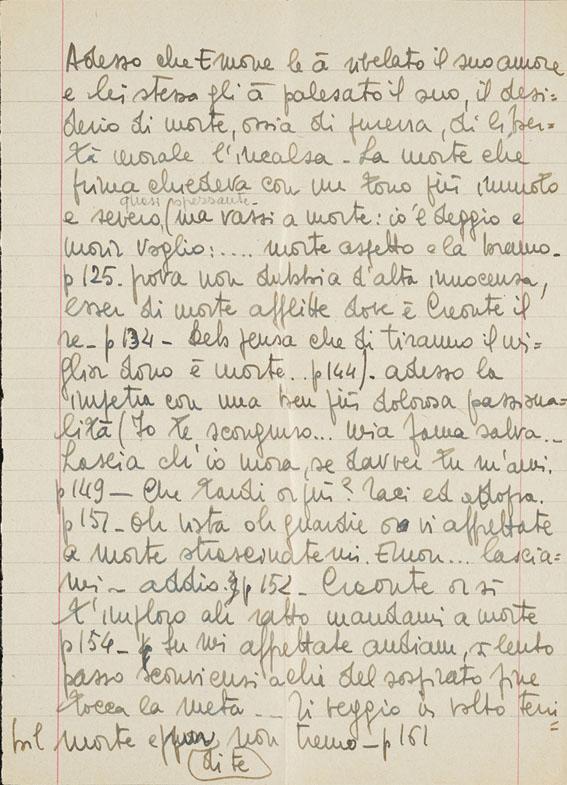 Adesso che Emone le à rivelato il suo amore
e lei stessa gli à palesato il suo, il desi=
derio di morte, ossia di purezza, di liber=
tà morale l'incalsa - La morte che
prima chiedeva con un tono più immoto
quasi sprezzante-
e severo, (ma vassi a morte: io 'l deggio e
morir voglio: .... morte aspetto e la bramo-
p 125. prova non dubbia d'alta innocenza,
esser di morte afflitte dove è Creonte il
re - p 134 - Deh pensa che di tiranno il mi=
glior dono è morte .. p 144). adesso la
impetra con una ben più dolorosa passiona=
lità (Io te scongiuro... mia fama salva...
Lascia ch'io mora, se davver tu m'ami.
p 149 - Che tardi or più? Taci ed adopra.
p 151 - Oh vista oh guardie or vi affrettate
a morte strascinatemi. Emon... lascia=
mi - addio. p 152 - Creonte or sì
t'imploro ah ratto mandami a morte
p 154 - tu mi affrettate andiam, sì lento
passo sconviensi a chi del sospirato fine
tocca la meta - - Ti veggio in volto terri
=
bil morte eppur non tremo - p 161
di te